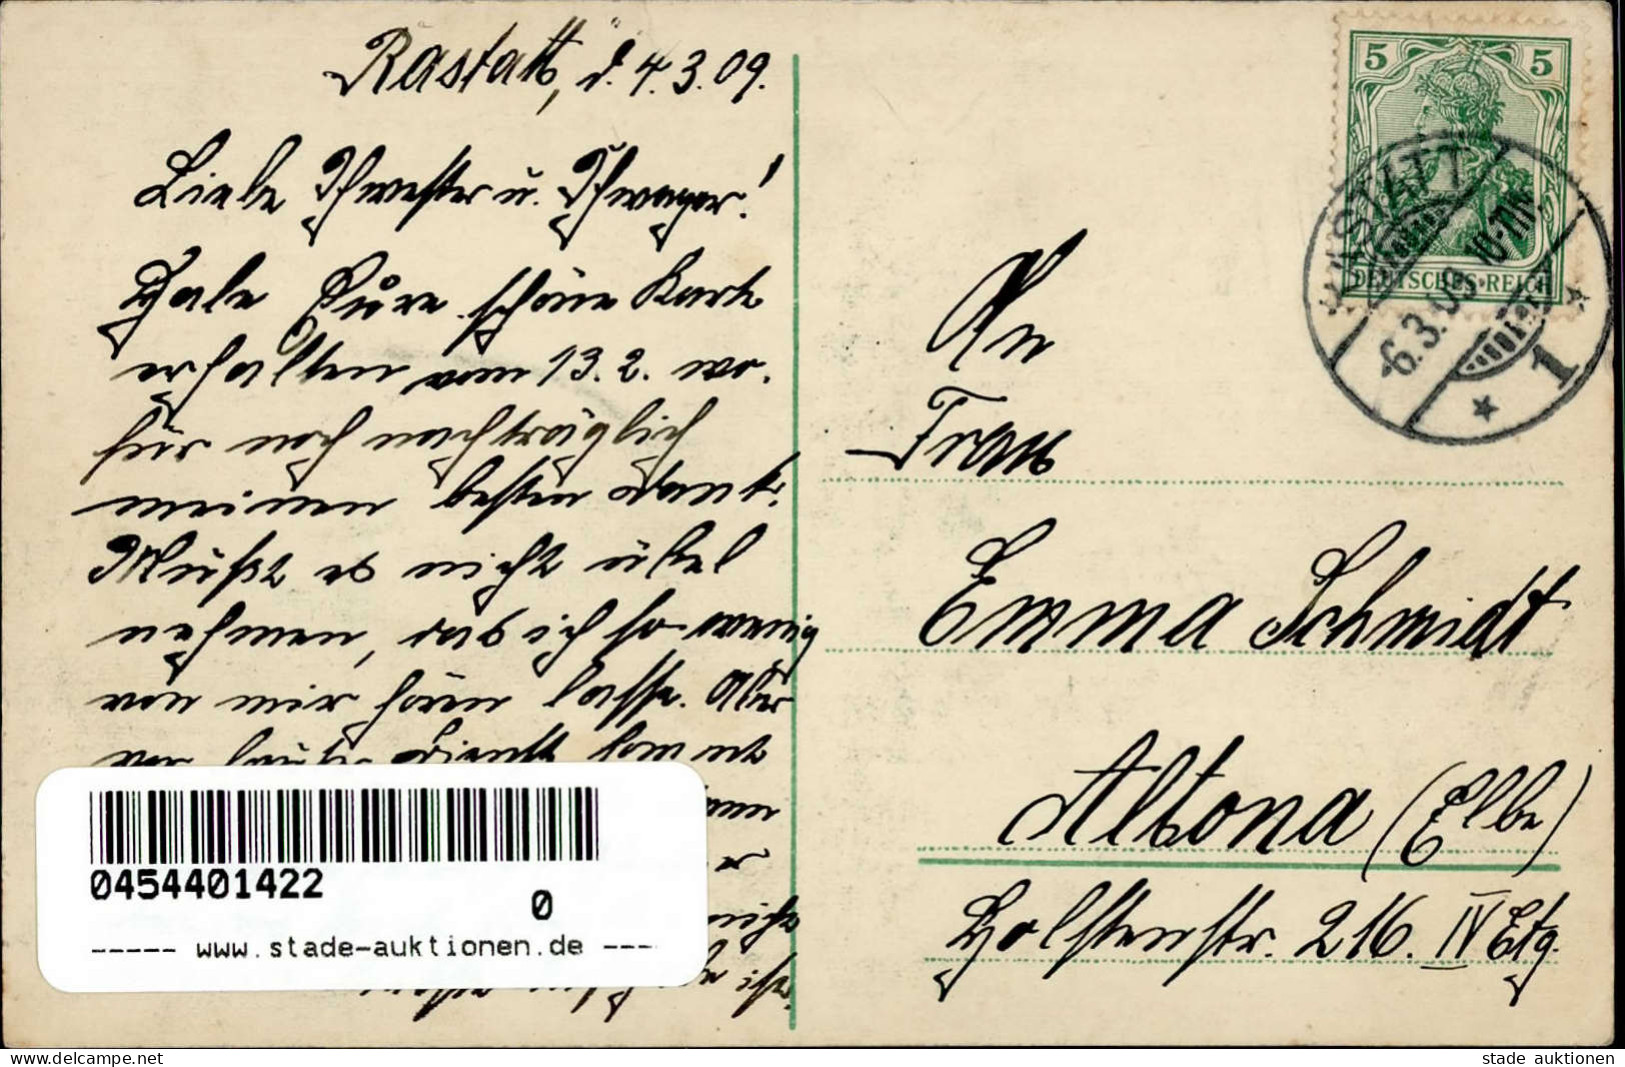 Rastatt, d. 4.3.09.
Liebe Schwester u. Schwager!
Habe Eure schöne Karte
erhalten vom 13.2. wo-
für noch nachträglich
meinen besten Dank.
Mußt es nicht übel
nehmen, das ich so wenig
von mir hören lasse. Aber
vor lauter Dienst kommt
An
Frau
Emma Schmidt
Altona (Elbe)
Holstenstr. 216. IV Etg.
5 5
DEUTSCHES REICH
RASTATT
-6.3.09. 10-11N.
* 1 *
0454401422
0
----- www.stade-auktionen.de ----
delcampe.net
stade auktionen